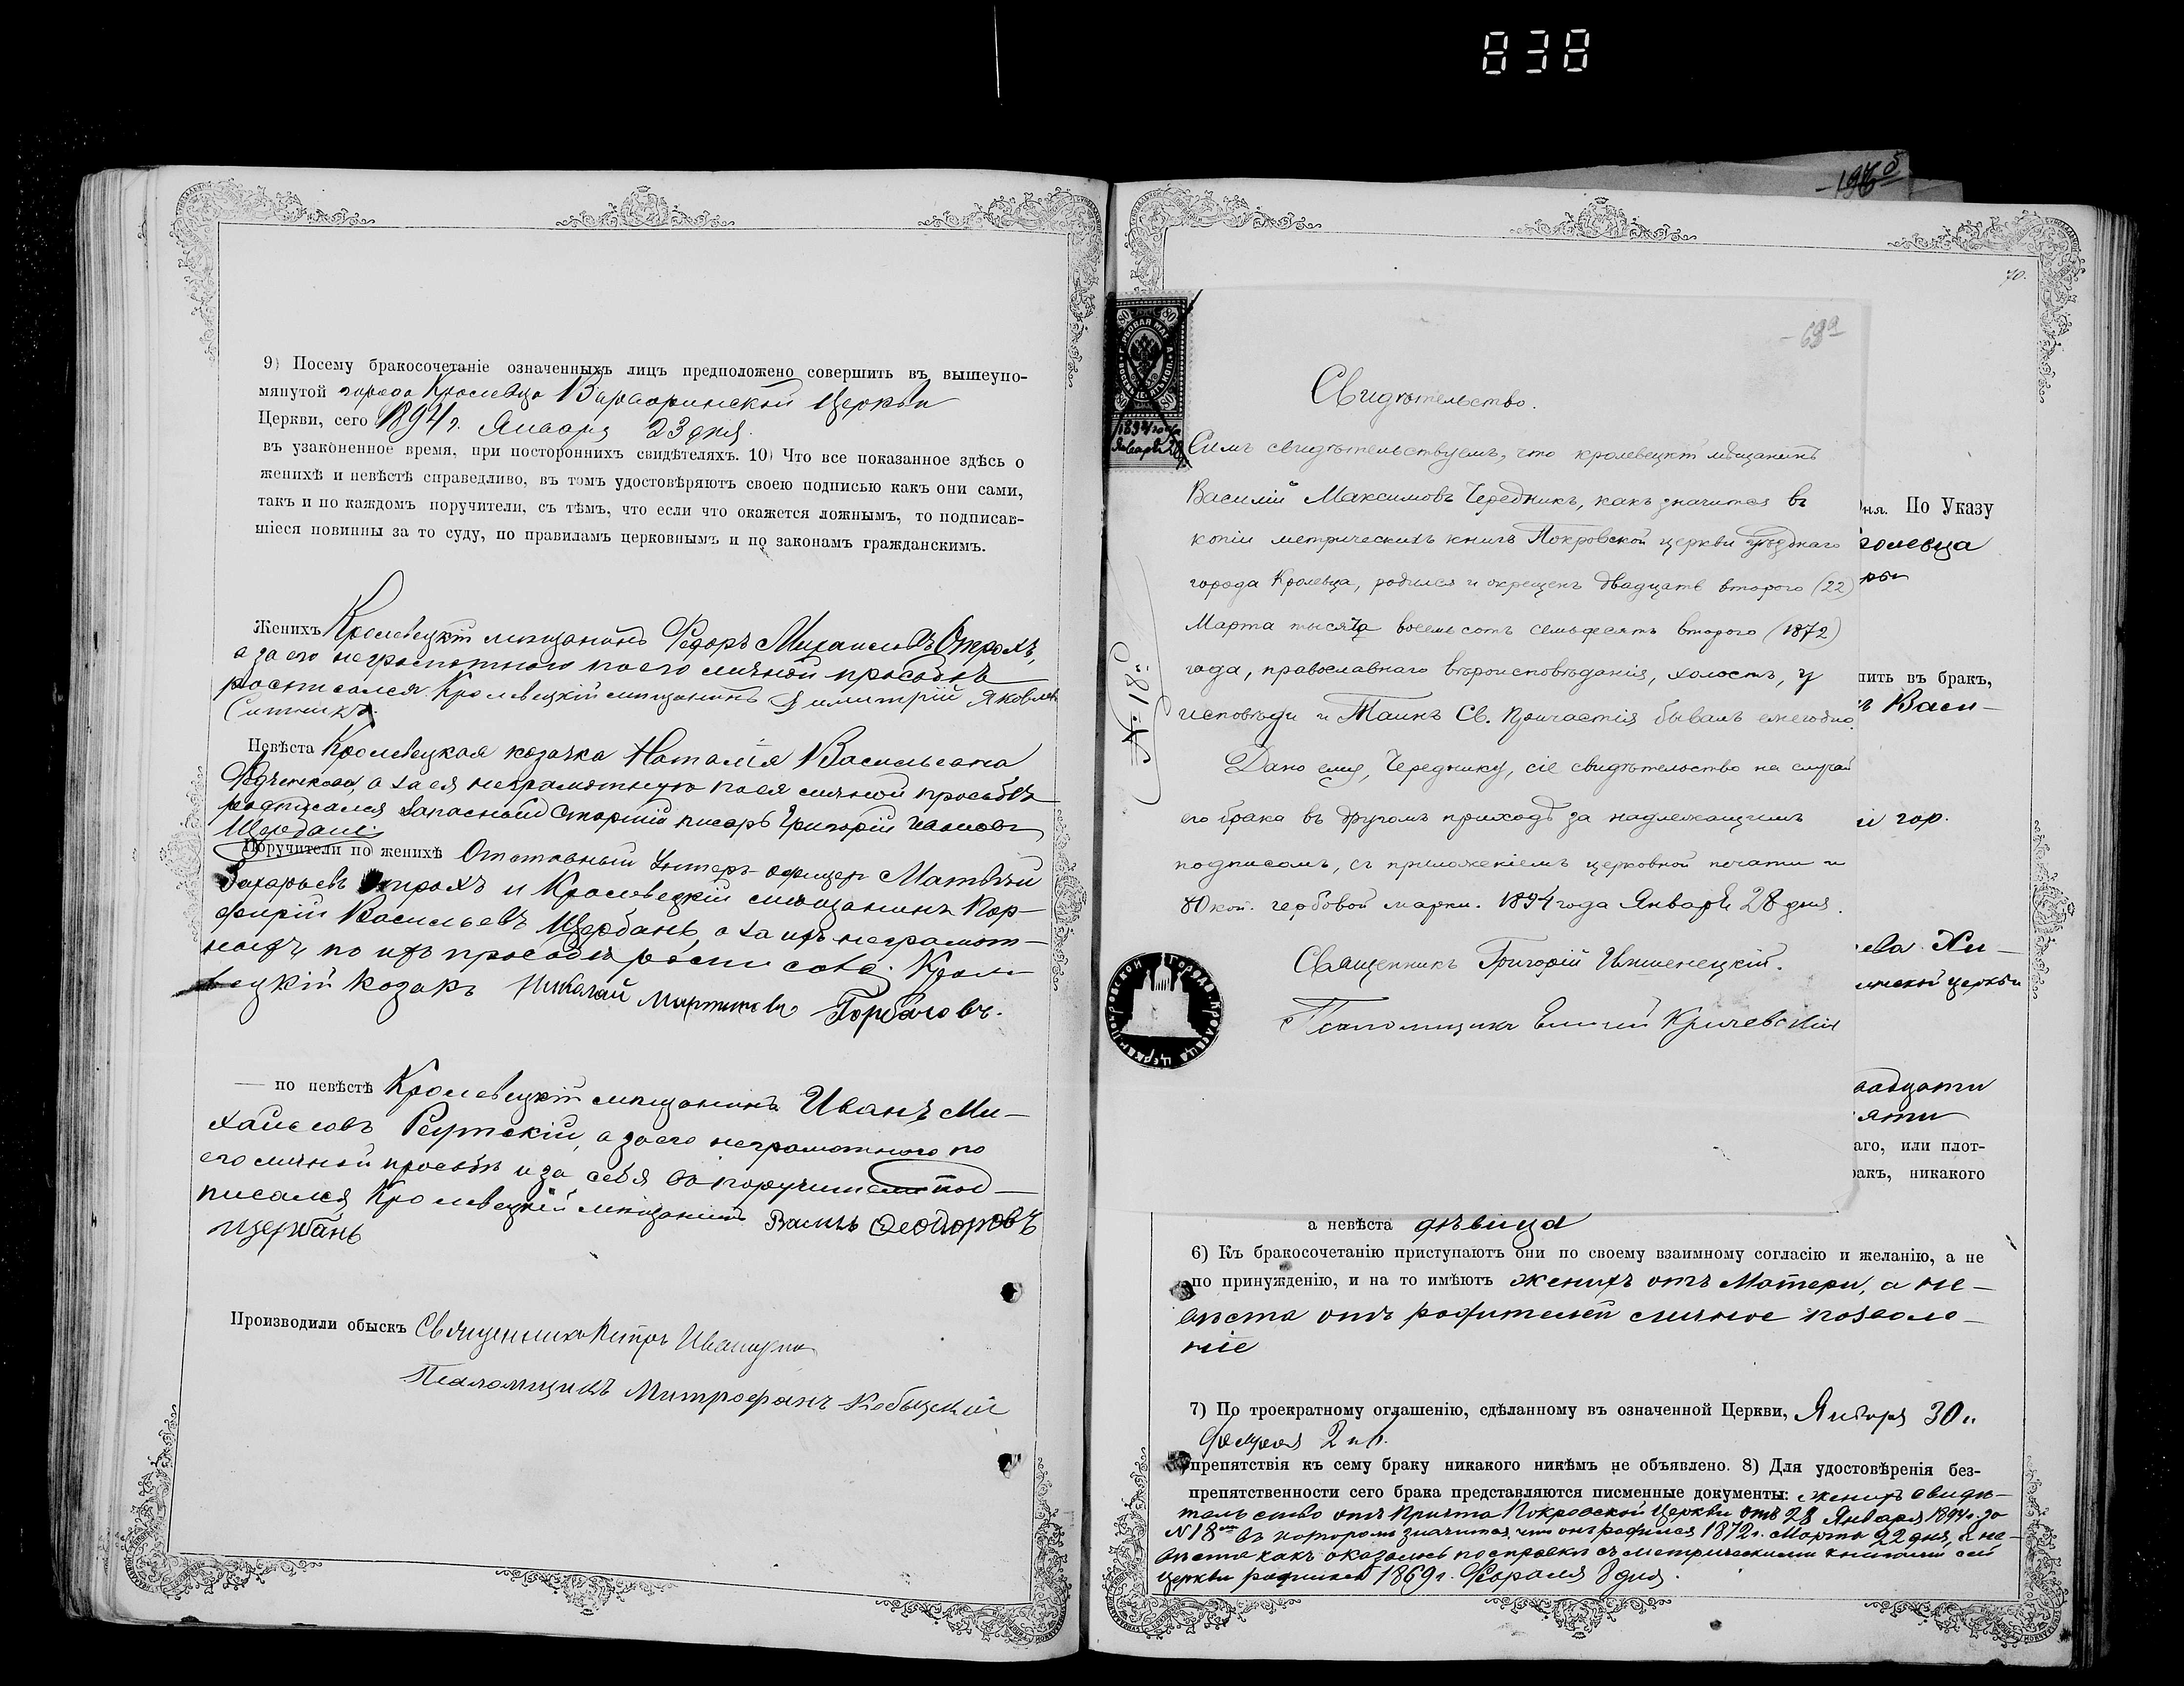 838
9) Посему бракосочетаніе означенныхъ лицъ предположено совершить въ вышеупо-
мянутой города Кролевца Варваринской Церкви
Церкви, сего 1894 г. Января 23 дня.
въ узаконенное время, при постороннихъ свидѣтеляхъ. 10) Что все показанное здѣсь о
женихѣ и невѣстѣ справедливо, въ томъ удостовѣряютъ своею подписью какъ они сами,
такъ и по каждомъ поручители, съ тѣмъ, что если что окажется ложнымъ, то подписав-
шіеся повинны за то суду, по правиламъ церковнымъ и по законамъ гражданскимъ.
Женихъ Кролевецкій мѣщанинъ Федоръ Михаиловъ Отрохъ,
а за его неграмотного по его личной просьбѣ
росписался Кролевецкій мѣщанинъ Димитрій Яковлев
Невѣста Кролевецкая козачка Наталія Васильевна
а за ея неграмотную по ея личной просьбѣ
росписался запасный старшій писарь Григорій Ивановъ
Щербань
Поручители по женихѣ Отставный Унтеръ-офицеръ Матвѣй
Захарьевъ Отрохъ и Кролевецкій мѣщанинъ Пор-
фирій Васильевъ Щербань, а за ихъ неграмот-
ныхъ по ихъ просьбѣ росписался Кроле-
вецкій козакъ Николай Мартиновъ Горбачовъ.
— по невѣстѣ Кролевецкій мѣщанинъ Иванъ Ми-
хайловъ Реутскій, а за его неграмотного по
его личной просьбѣ и за себя поручителя под-
писался Кролевецкій мѣщанинъ Феодоровъ
Щербань
Производили обыскъ Священникъ Петръ
Псаломщикъ Митрофанъ Кобыцкій
70.
Свидѣтельство.
1894 года
Января 28
Симъ свидѣтельствуемъ, что кролевецкій мѣщанинъ
Василій Максимовъ Чередникъ, какъ значится въ
копіи метрическихъ книгъ Покровской церкви уѣзднаго
города Кролевца, родился и окрещенъ двадцать второго (22)
Марта тысяча восемьсотъ семьдесятъ второго (1872)
года, православнаго вѣроисповѣданія, холостъ, у
исповѣди и Таинъ Св. Причастія бывалъ ежегодно.
Дано ему, Череднику, сіе свидѣтельство на случай
его брака въ другомъ приходѣ за надлежащимъ
подписомъ, съ приложеніемъ церковной печати и
80 коп. гербовой марки. 1894 года Января 28 дня.
Священникъ Григорій
Псаломщикъ Кричевскій
№ 18
дня. По Указу
пить въ бракъ,
Васи-
гор.
ева Хи-
церкви
адцати
яти
аго, или плот-
ракъ, никакого
а невѣста дѣвица
6) Къ бракосочетанію приступаютъ они по своему взаимному согласію и желанію, а не
по принужденію, и на то имѣютъ женихъ отъ Матери, а не-
вѣста отъ родителей личное позволе-
ніе
7) По троекратному оглашенію, сдѣланному въ означенной Церкви, Января 30 и
Февраля 2 и 6.
препятствія къ сему браку никакого никѣмъ не объявлено. 8) Для удостовѣренія без-
препятственности сего брака представляются писменные документы: женихъ свидѣ-
тельство отъ Причта Покровской Церкви отъ 28 Января 1894 г. за
№ 18 въ которомъ значится, что онъ родился 1872 г. Марта 22 дня, а не-
вѣста какъ оказалось по справкѣ съ метрическими книгами сей
церкви родилась 1869 г. Февраля 8 дня.